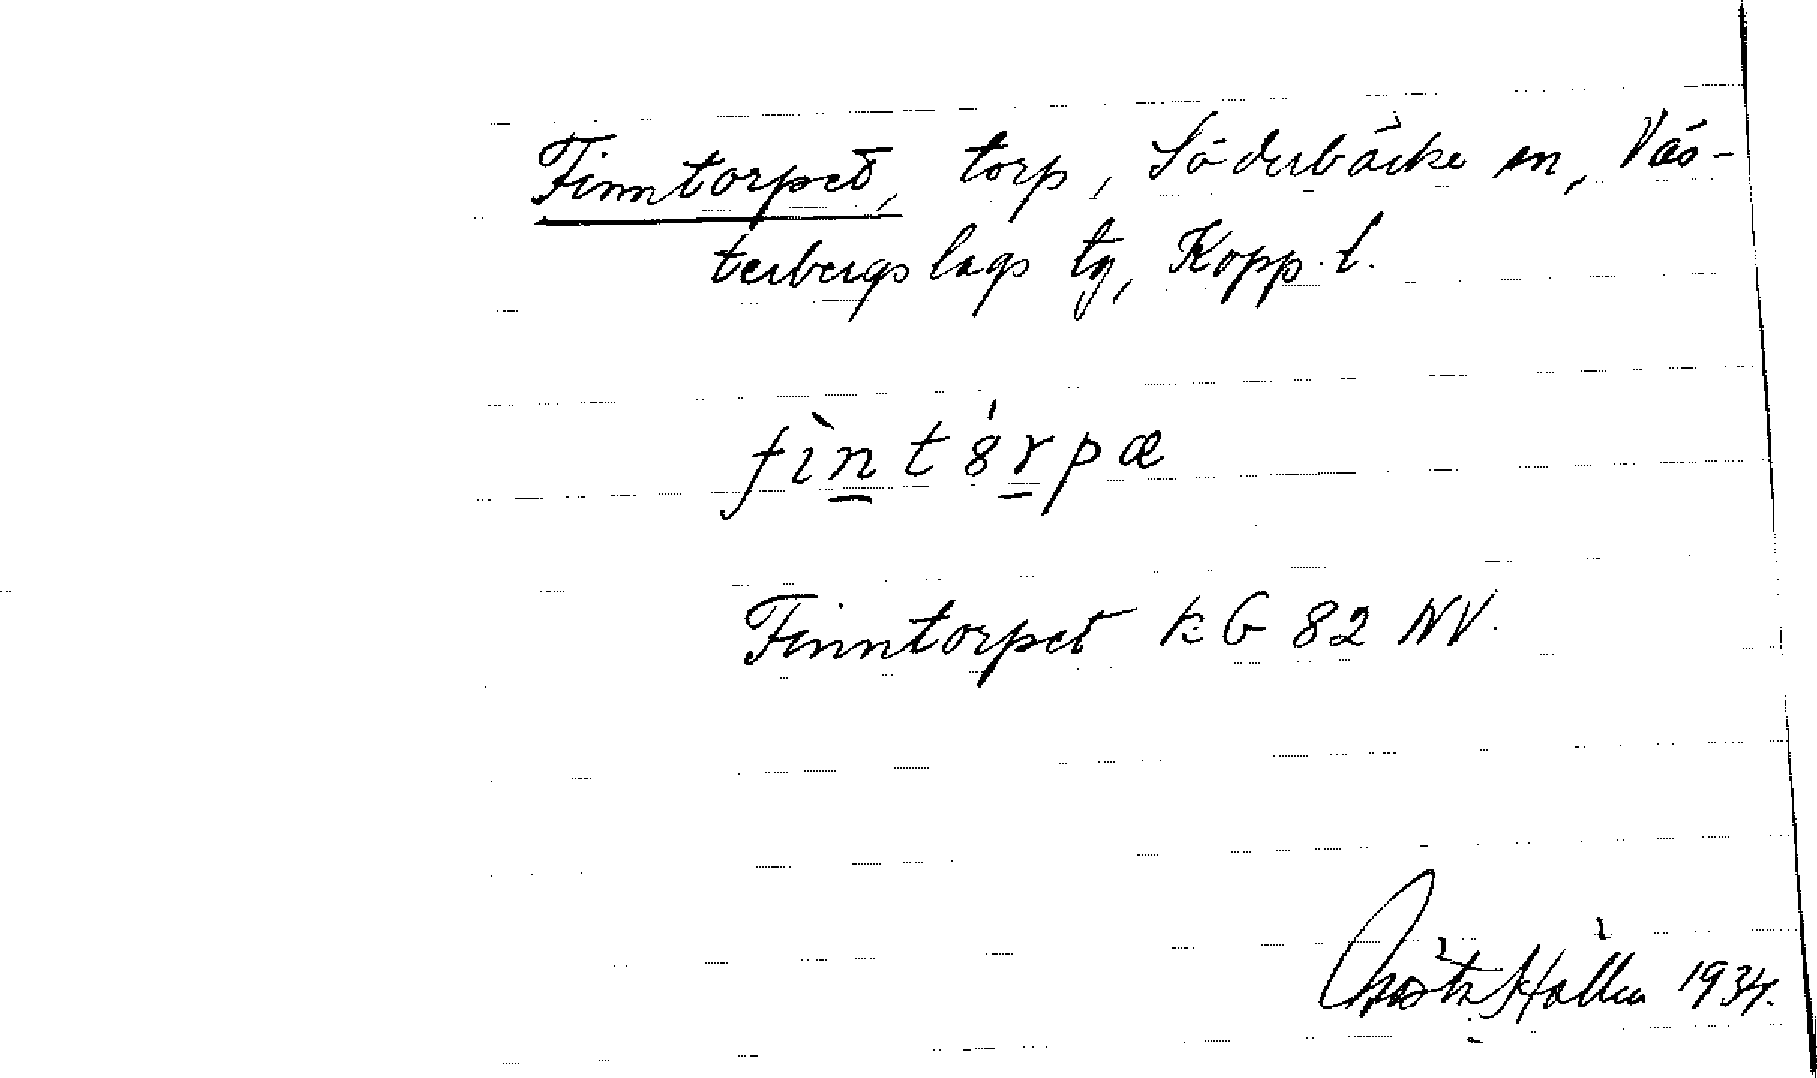 Finntorpet, torp, Söderbärke sn, Väs-
terbergslags tg, Kopp. l.
fìn̲t8́r̲pæ
Finntorpet kG 82 NV.
Gösta Hallén 1934.